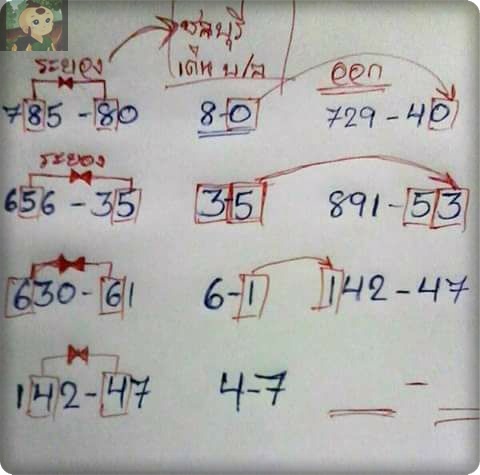 ชลบุรี
ระยอง เดิน บ/ล ออก
785 - 80 8-0 729 - 40
ระยอง
656 - 35 3-5 891 - 53
630 - 61 6-1 142 - 47
142 - 47 4-7